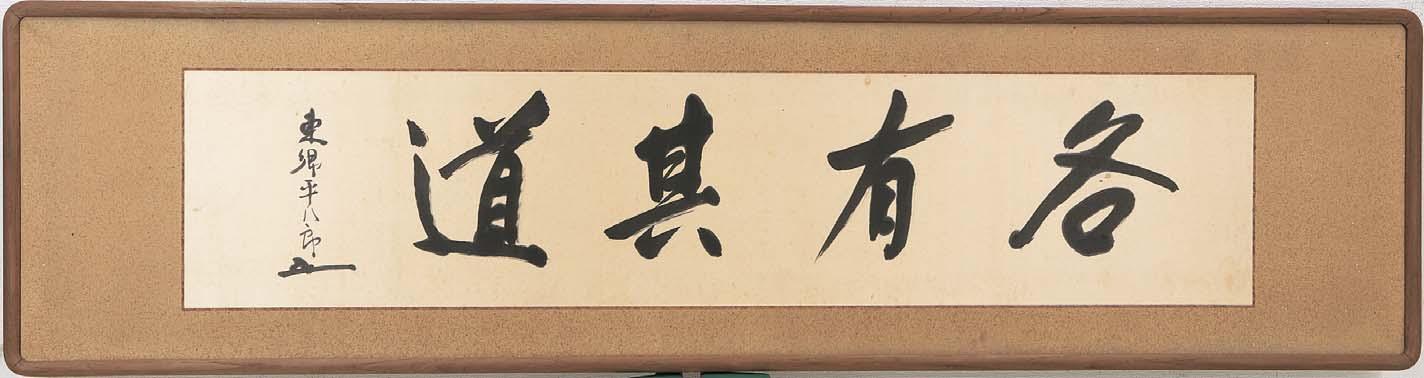 各有其道
東郷平八郎